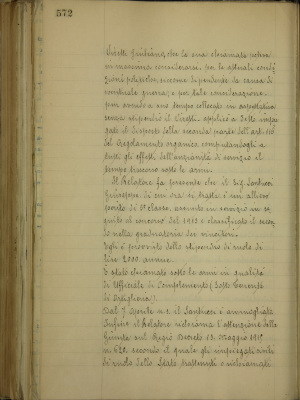 572
Cicelli Giuliano, che la sua chiamata poteva
in massima considerarsi, per le attuali condi-
zioni politiche, siccome dipendente da causa di
eventuale guerra; e per tale considerazione
pur avendo a suo tempo collocato in aspettativa
senza stipendio il Cicelli, applicò a detto impie-
gato il disposto della seconda parte dell'art. 116
del Regolamento organico computandogli a
tutti gli effetti dell'anzianità di servizio il
tempo trascorso sotto le armi.
Il Relatore fa presente che il Sig. Santucci
di cui ora si tratta è un allievo
perito di 2ª classe, assunto in servizio in se-
guito al concorso del 1913 e classificato il secon-
do nella graduatoria dei vincitori.
Egli è provvisto dello stipendio di ruolo di
lire 2000 annue.
È stato chiamato sotto le armi in qualità
di Ufficiale di Complemento (Sotto Tenente
di Artiglieria).
Dal 7 Aprile u.s. il Santucci è ammogliato
Infine il Relatore richiama l'attenzione della
Giunta sul Regio Decreto 13 Maggio 1915
n. 622 secondo il quale gli impiegati civili
di ruolo dello Stato trattenuti o richiamati